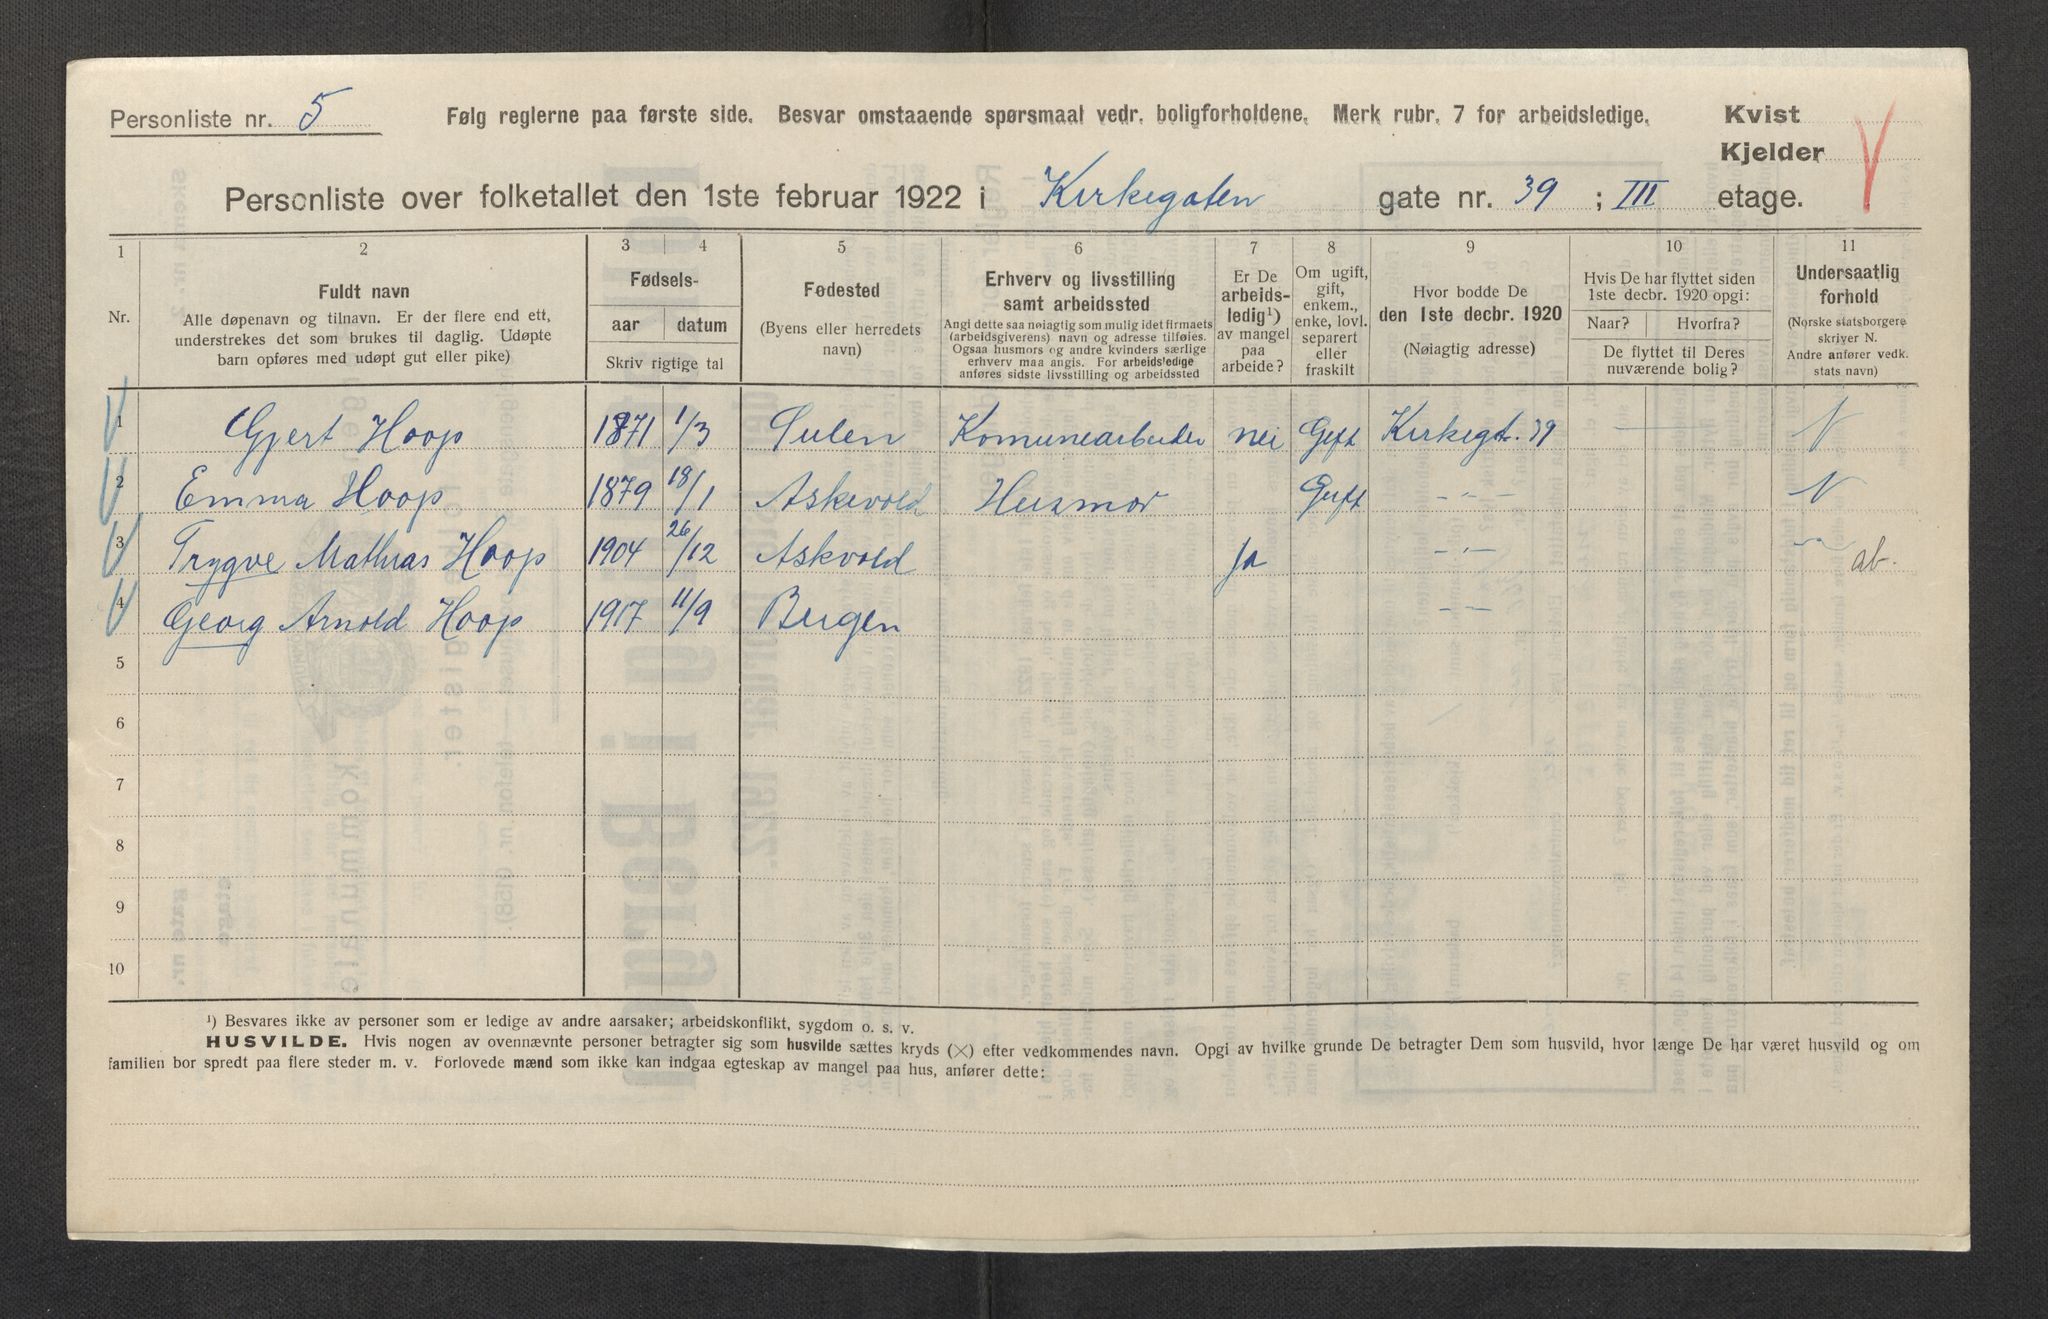 Personliste nr. 5 Følg reglerne paa første side. Besvar omstaaende spørsmaal vedr. boligforholdene. Merk rubr. 7 for arbeidsledige. Kvist
Kjelder
Personliste over folketallet den 1ste februar 1922 i Kirkegaten gate nr. 39 ; III etage.
1 2 3 4 5 6 7 8 9 10 11
Nr.
Fuldt navn
Alle døpenavn og tilnavn. Er der flere end ett,
understrekes det som brukes til daglig. Udøpte
barn opføres med udøpt gut eller pike)
Fødsels-
aar datum
Skriv rigtige tal
Fødested
(Byens eller herredets
navn)
Erhverv og livsstilling
samt arbeidssted
Angi dette saa nøiagtig som mulig idet firmaets
(arbeidsgiverens) navn og adresse tilføies.
Ogsaa husmors og andre kvinders særlige
erhverv maa angis. For arbeidsledige
anføres sidste livsstilling og arbeidssted
Er De
arbeids-
ledig¹)
av mangel
paa
arbeide?
Om ugift,
gift,
enkem.,
enke, lovl.
separert
eller
fraskilt
Hvor bodde De
den 1ste decbr. 1920
(Nøiagtig adresse)
Hvis De har flyttet siden
1ste decbr. 1920 opgi:
Naar? Hvorfra?
De flyttet til Deres
nuværende bolig?
Undersaatlig
forhold
(Norske statsborgere
skriver N.
Andre anfører vedk.
stats navn)
1 Gjert Hoop 1871 1/3 Sulen Komunearbeider nei Gift Kirkegt. 39 N
2 Emma Hoop 1879 18/1 Askevold Husmor Gift -"- N
3 Trygve Mathias Hoop 1904 26/12 Askvold Ja -"- -"- ab.
4 Georg Arnold Hoop 1917 11/9 Bergen -"-
5
6
7
8
9
10
¹) Besvares ikke av personer som er ledige av andre aarsaker; arbeidskonflikt, sygdom o. s. v.
HUSVILDE. Hvis nogen av ovennævnte personer betragter sig som husvilde sættes kryds (×) efter vedkommendes navn. Opgi av hvilke grunde De betragter Dem som husvild, hvor længe De har været husvild og om
familien bor spredt paa flere steder m. v. Forlovede mænd som ikke kan indgaa egteskap av mangel paa hus, anfører dette: